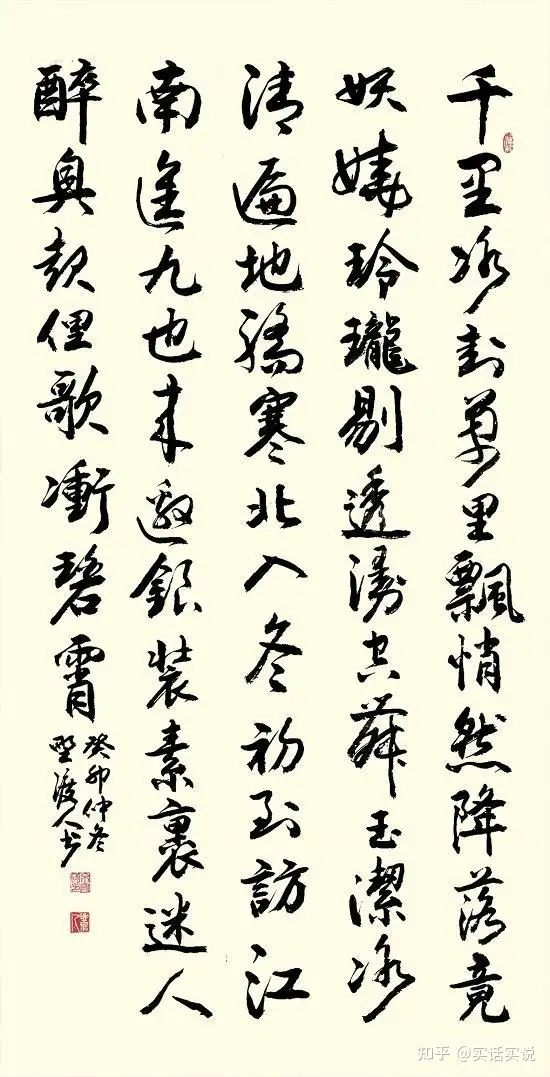 千里冰封萬里飄悄然降落竟
妖嬈玲瓏剔透漫空舞玉潔冰
清遍地驕寒北入冬初到訪江
南進九也来邀銀裝素裹迷人
醉興起俚歌衝碧霄
癸卯仲冬
野渡人書
知乎 @实话实说